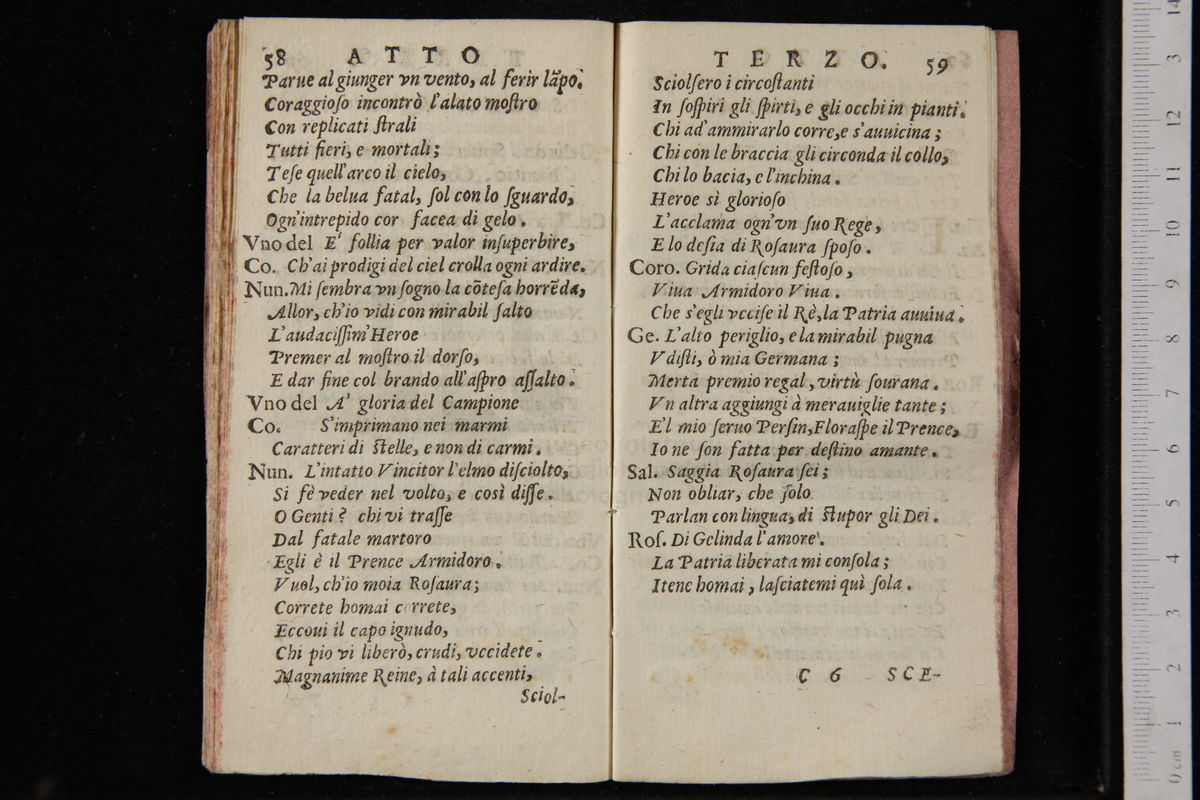 58 ATTO
Parue al giunger vn vento, al ferir lãpo.
Coraggioſo incontrò l'alato moſtro
Con replicati ſtrali
Tutti fieri, e mortali;
Teſe quell'arco il cielo,
Che la belua fatal, ſol con lo ſguardo,
Ogn'intrepido cor facea di gelo.
Vno del E' follia per valor inſuperbire,
Co. Ch'ai prodigi del ciel crolla ogni ardire.
Nun. Mi ſembra vn ſogno la cõteſa horrẽda,
Allor, ch'io vidi con mirabil ſalto
L'audaciſſim'Heroe
Premer al moſtro il dorſo,
E dar fine col brando all'aſpro aſſalto.
Vno del A' gloria del Campione
Co. S'imprimano nei marmi
Caratteri di ſtelle, e non di carmi.
Nun. L'intatto Vincitor l'elmo diſciolto,
Si fè veder nel volto, e così diſſe.
O Genti? chi vi traſſe
Dal fatale martoro
Egli è il Prence Armidoro.
Vuol, ch'io moia Roſaura;
Correte homai correte,
Eccoui il capo ignudo,
Chi pio vi liberò, crudi, vccidete.
Magnanime Reine, à tali accenti,
Sciol-
TERZO. 59
Sciolſero i circoſtanti
In ſoſpiri gli ſpirti, e gli occhi in pianti.
Chi ad'ammirarlo corre, e s'auuicina;
Chi con le braccia gli circonda il collo,
Chi lo bacia, e l'inchina.
Heroe sì glorioſo
L'acclama ogn'vn ſuo Rege,
E lo deſia di Roſaura ſpoſo.
Coro. Grida ciaſcun feſtoſo,
Viua Armidoro Viua.
Che s'egli vcciſe il Rè, la Patria auuiua.
Ge. L'alto periglio, e la mirabil pugna
Vdiſti, ò mia Germana;
Merta premio regal, virtù ſourana.
Vn altra aggiungi à merauiglie tante;
E'l mio ſeruo Perſin, Floraſpe il Prence,
Io ne ſon fatta per deſtino amante.
Sal. Saggia Roſaura ſei;
Non obliar, che ſolo
Parlan con lingua, di ſtupor gli Dei.
Roſ. Di Gelinda l'amore.
La Patria liberata mi conſola;
Itene homai, laſciatemi quì ſola.
C 6 SCE-